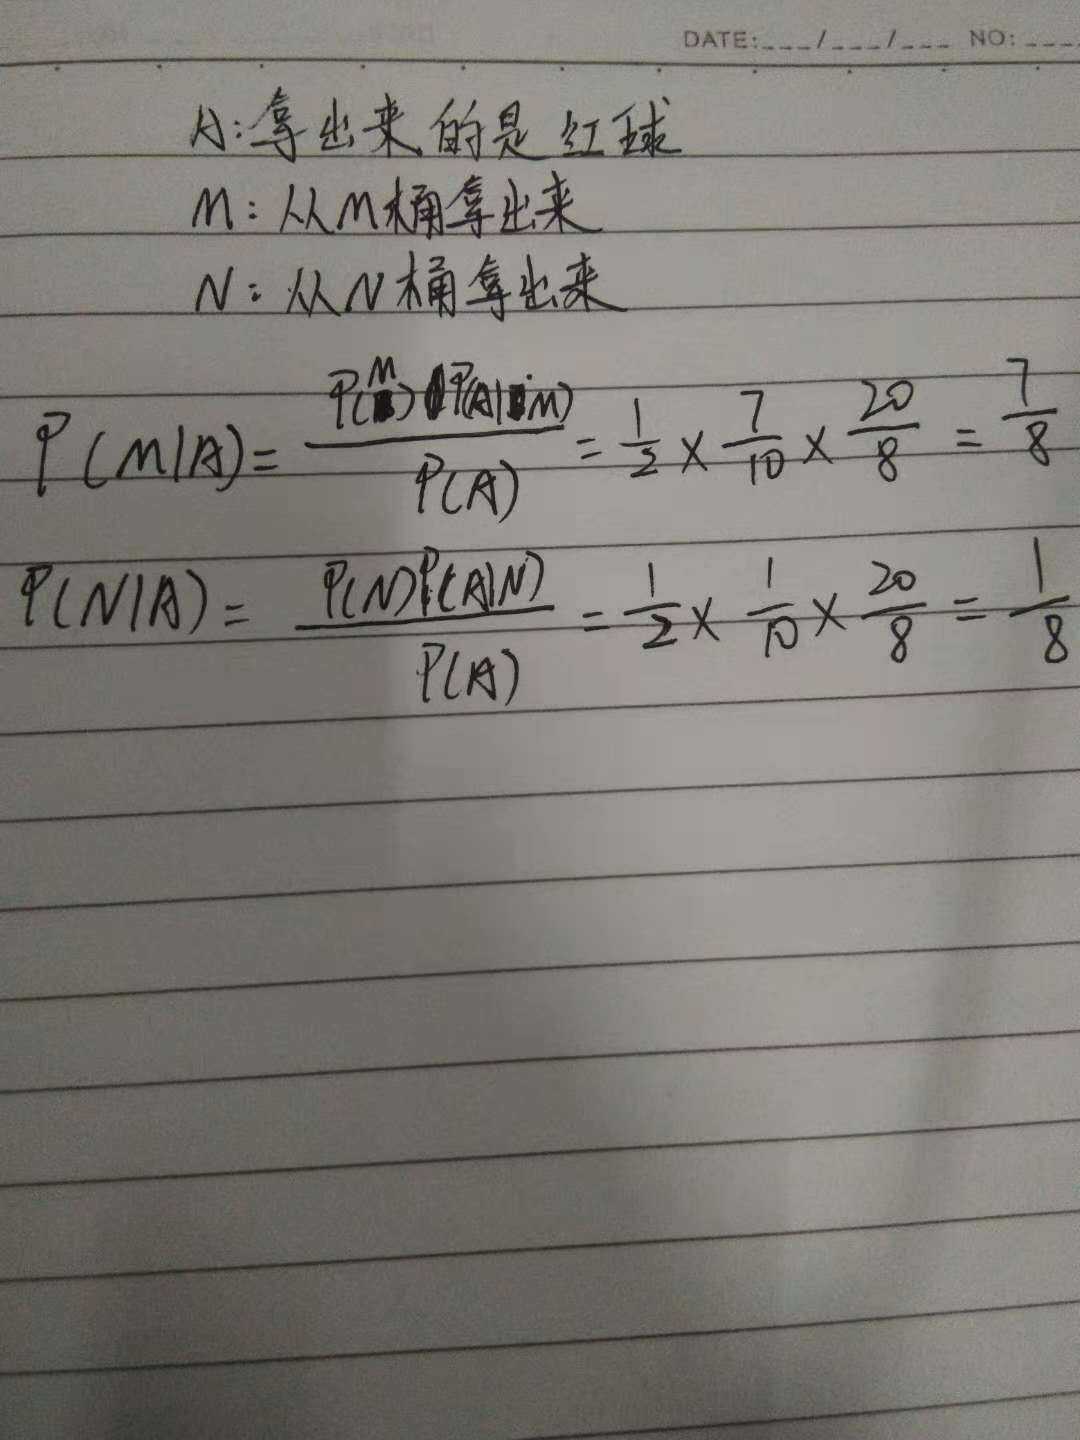 DATE:___/___/___ NO:____
A:拿出来的是红球
M:从M桶拿出来
N:从N桶拿出来
P(M|A)= P(M)P(A|M)/P(A) = 1/2 × 7/10 × 20/8 = 7/8
P(N|A)= P(N)P(A|N)/P(A) = 1/2 × 1/10 × 20/8 = 1/8